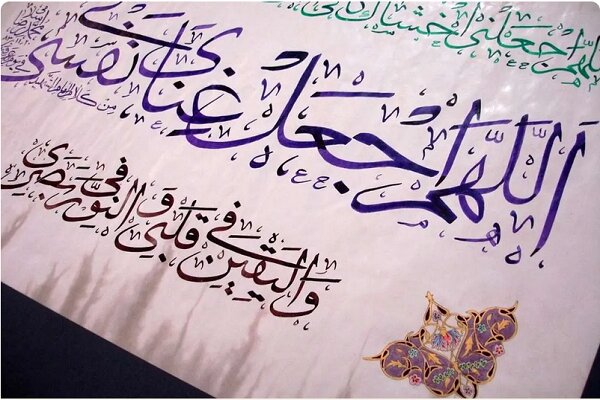 اللهم اجعلني اخشاك كاني
اللّهمّ اجعل غناي في نفسي
واليقين في قلبي و النور في بصري